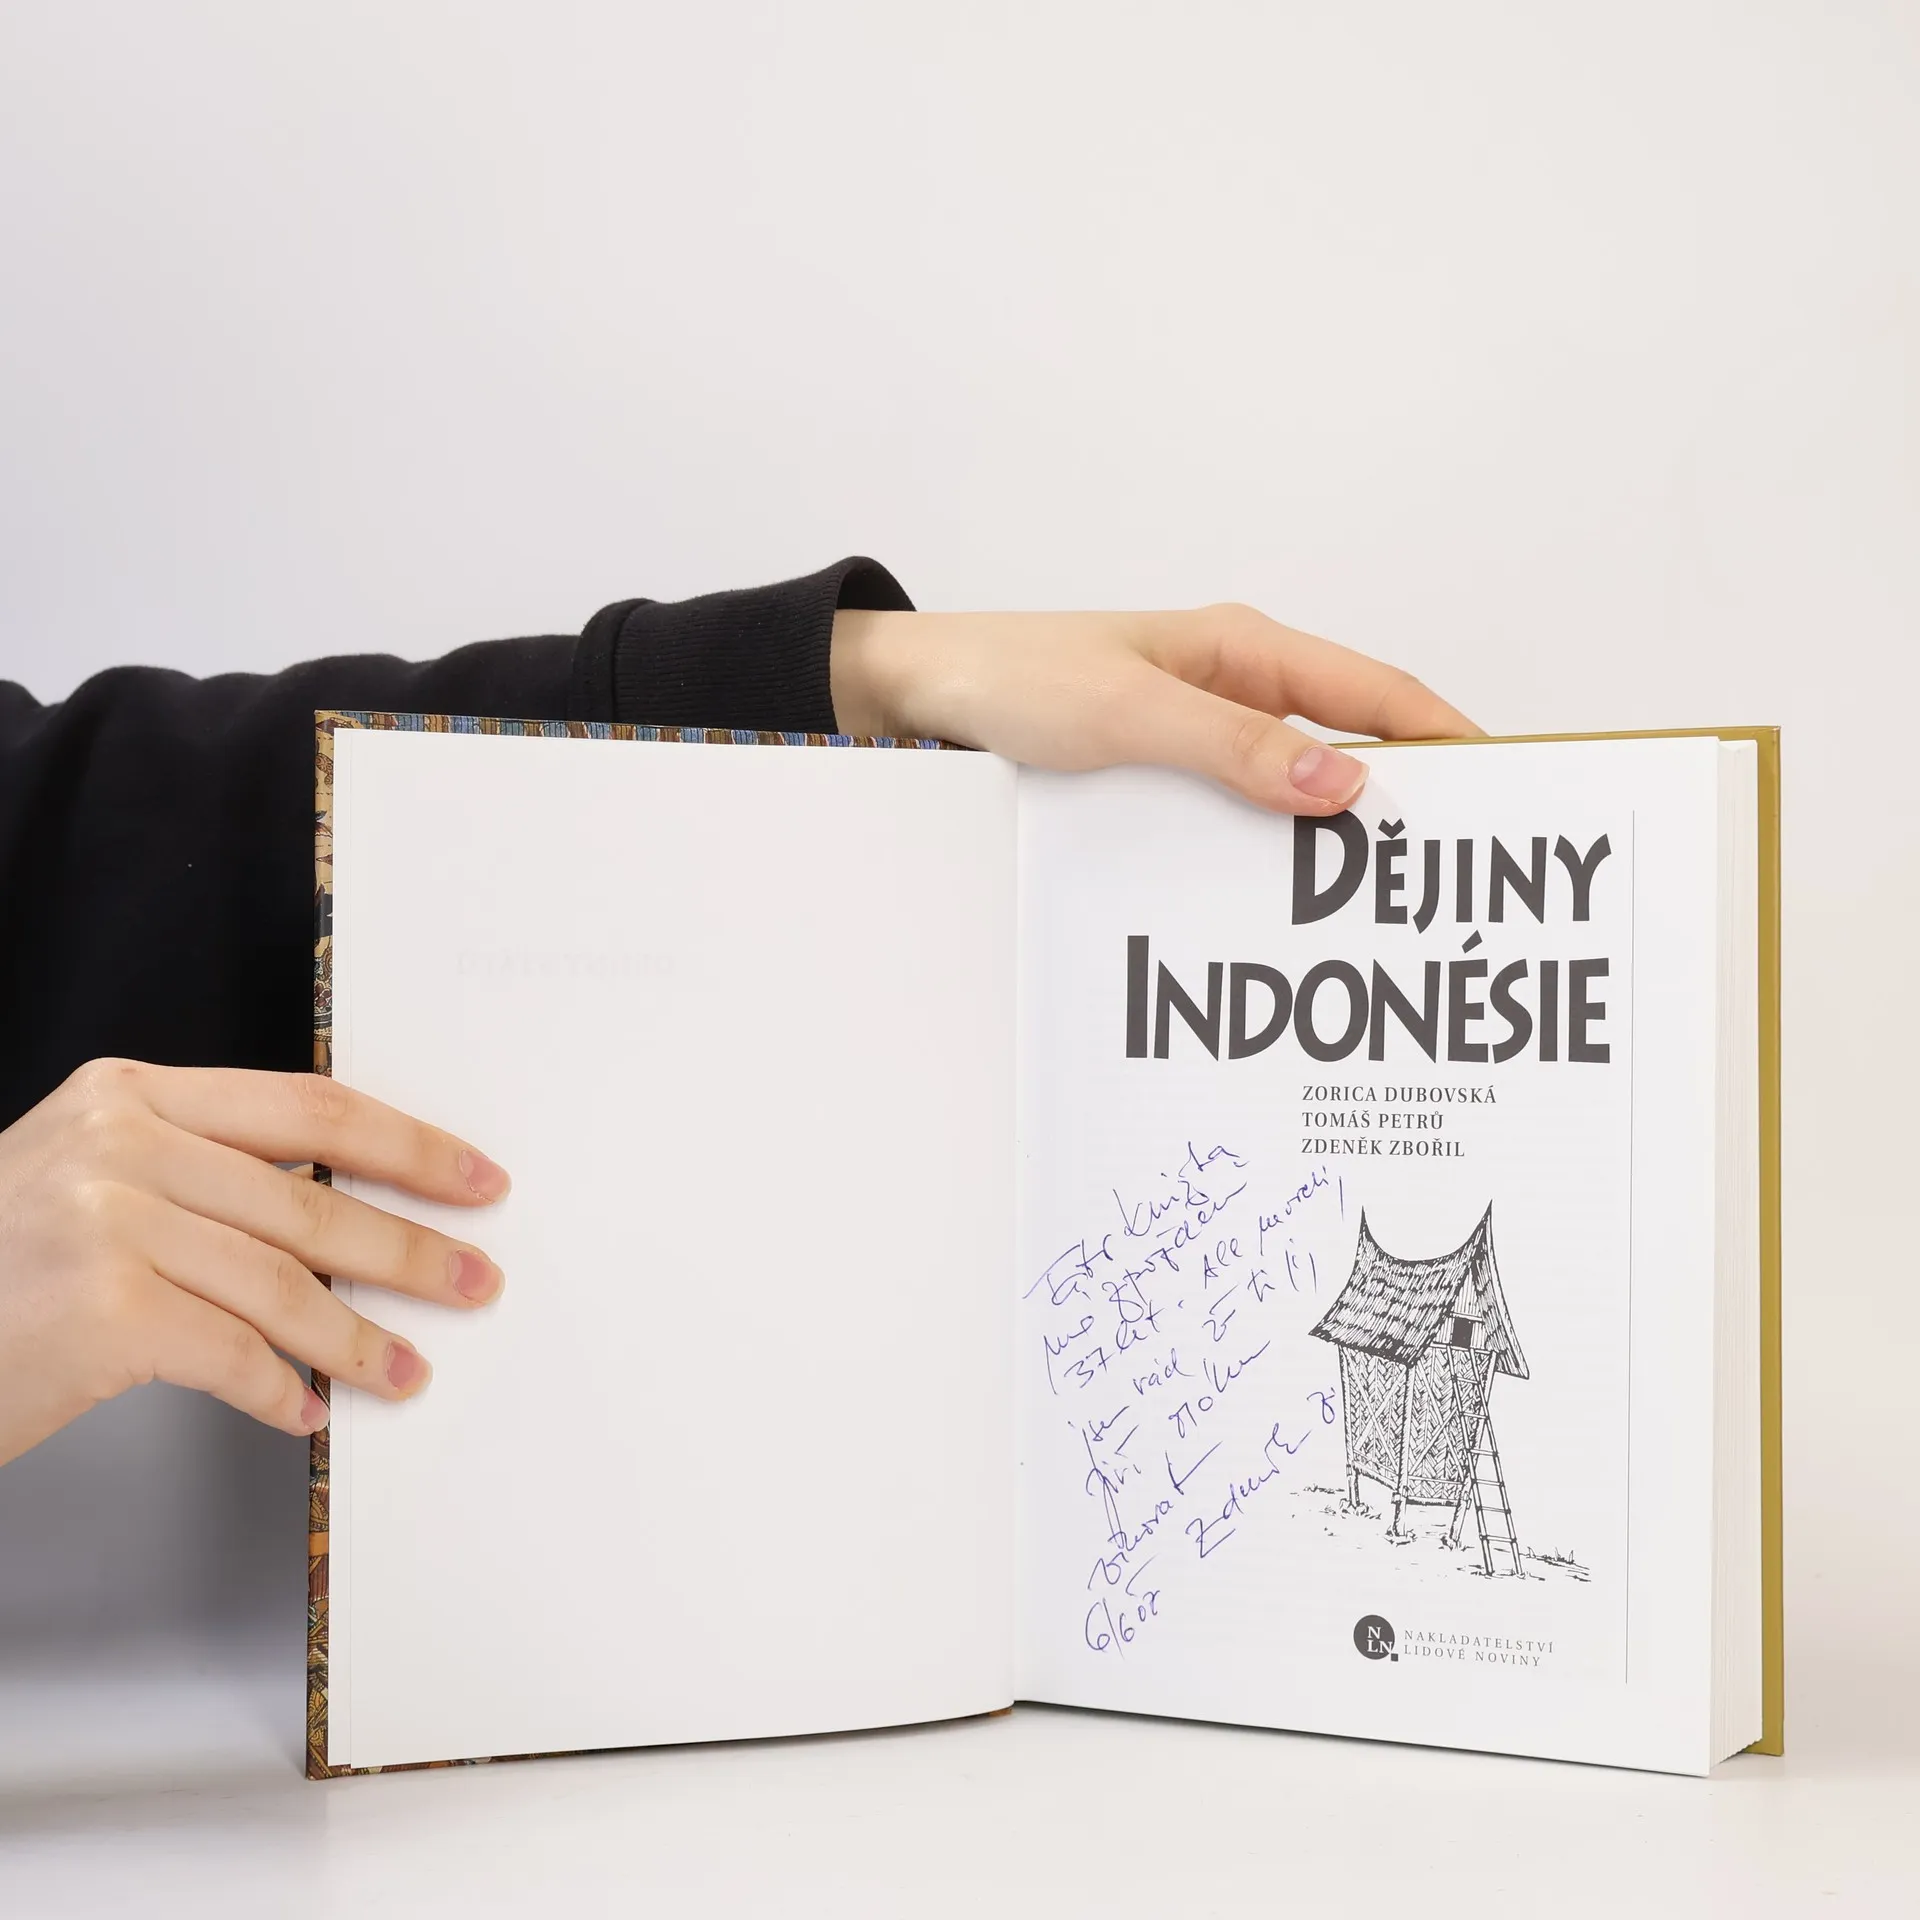 DĚJINY
INDONÉSIE
ZORICA DUBOVSKÁ
TOMÁŠ PETRŮ
ZDENĚK ZBOŘIL
Tato knížka
má zpoždění
37 let. Ale nevadí,
jsem rád že ti ji
Jiří mohu
věnovat
Zdeněk Z
6/6 05
N
LN
NAKLADATELSTVÍ
LIDOVÉ NOVINY